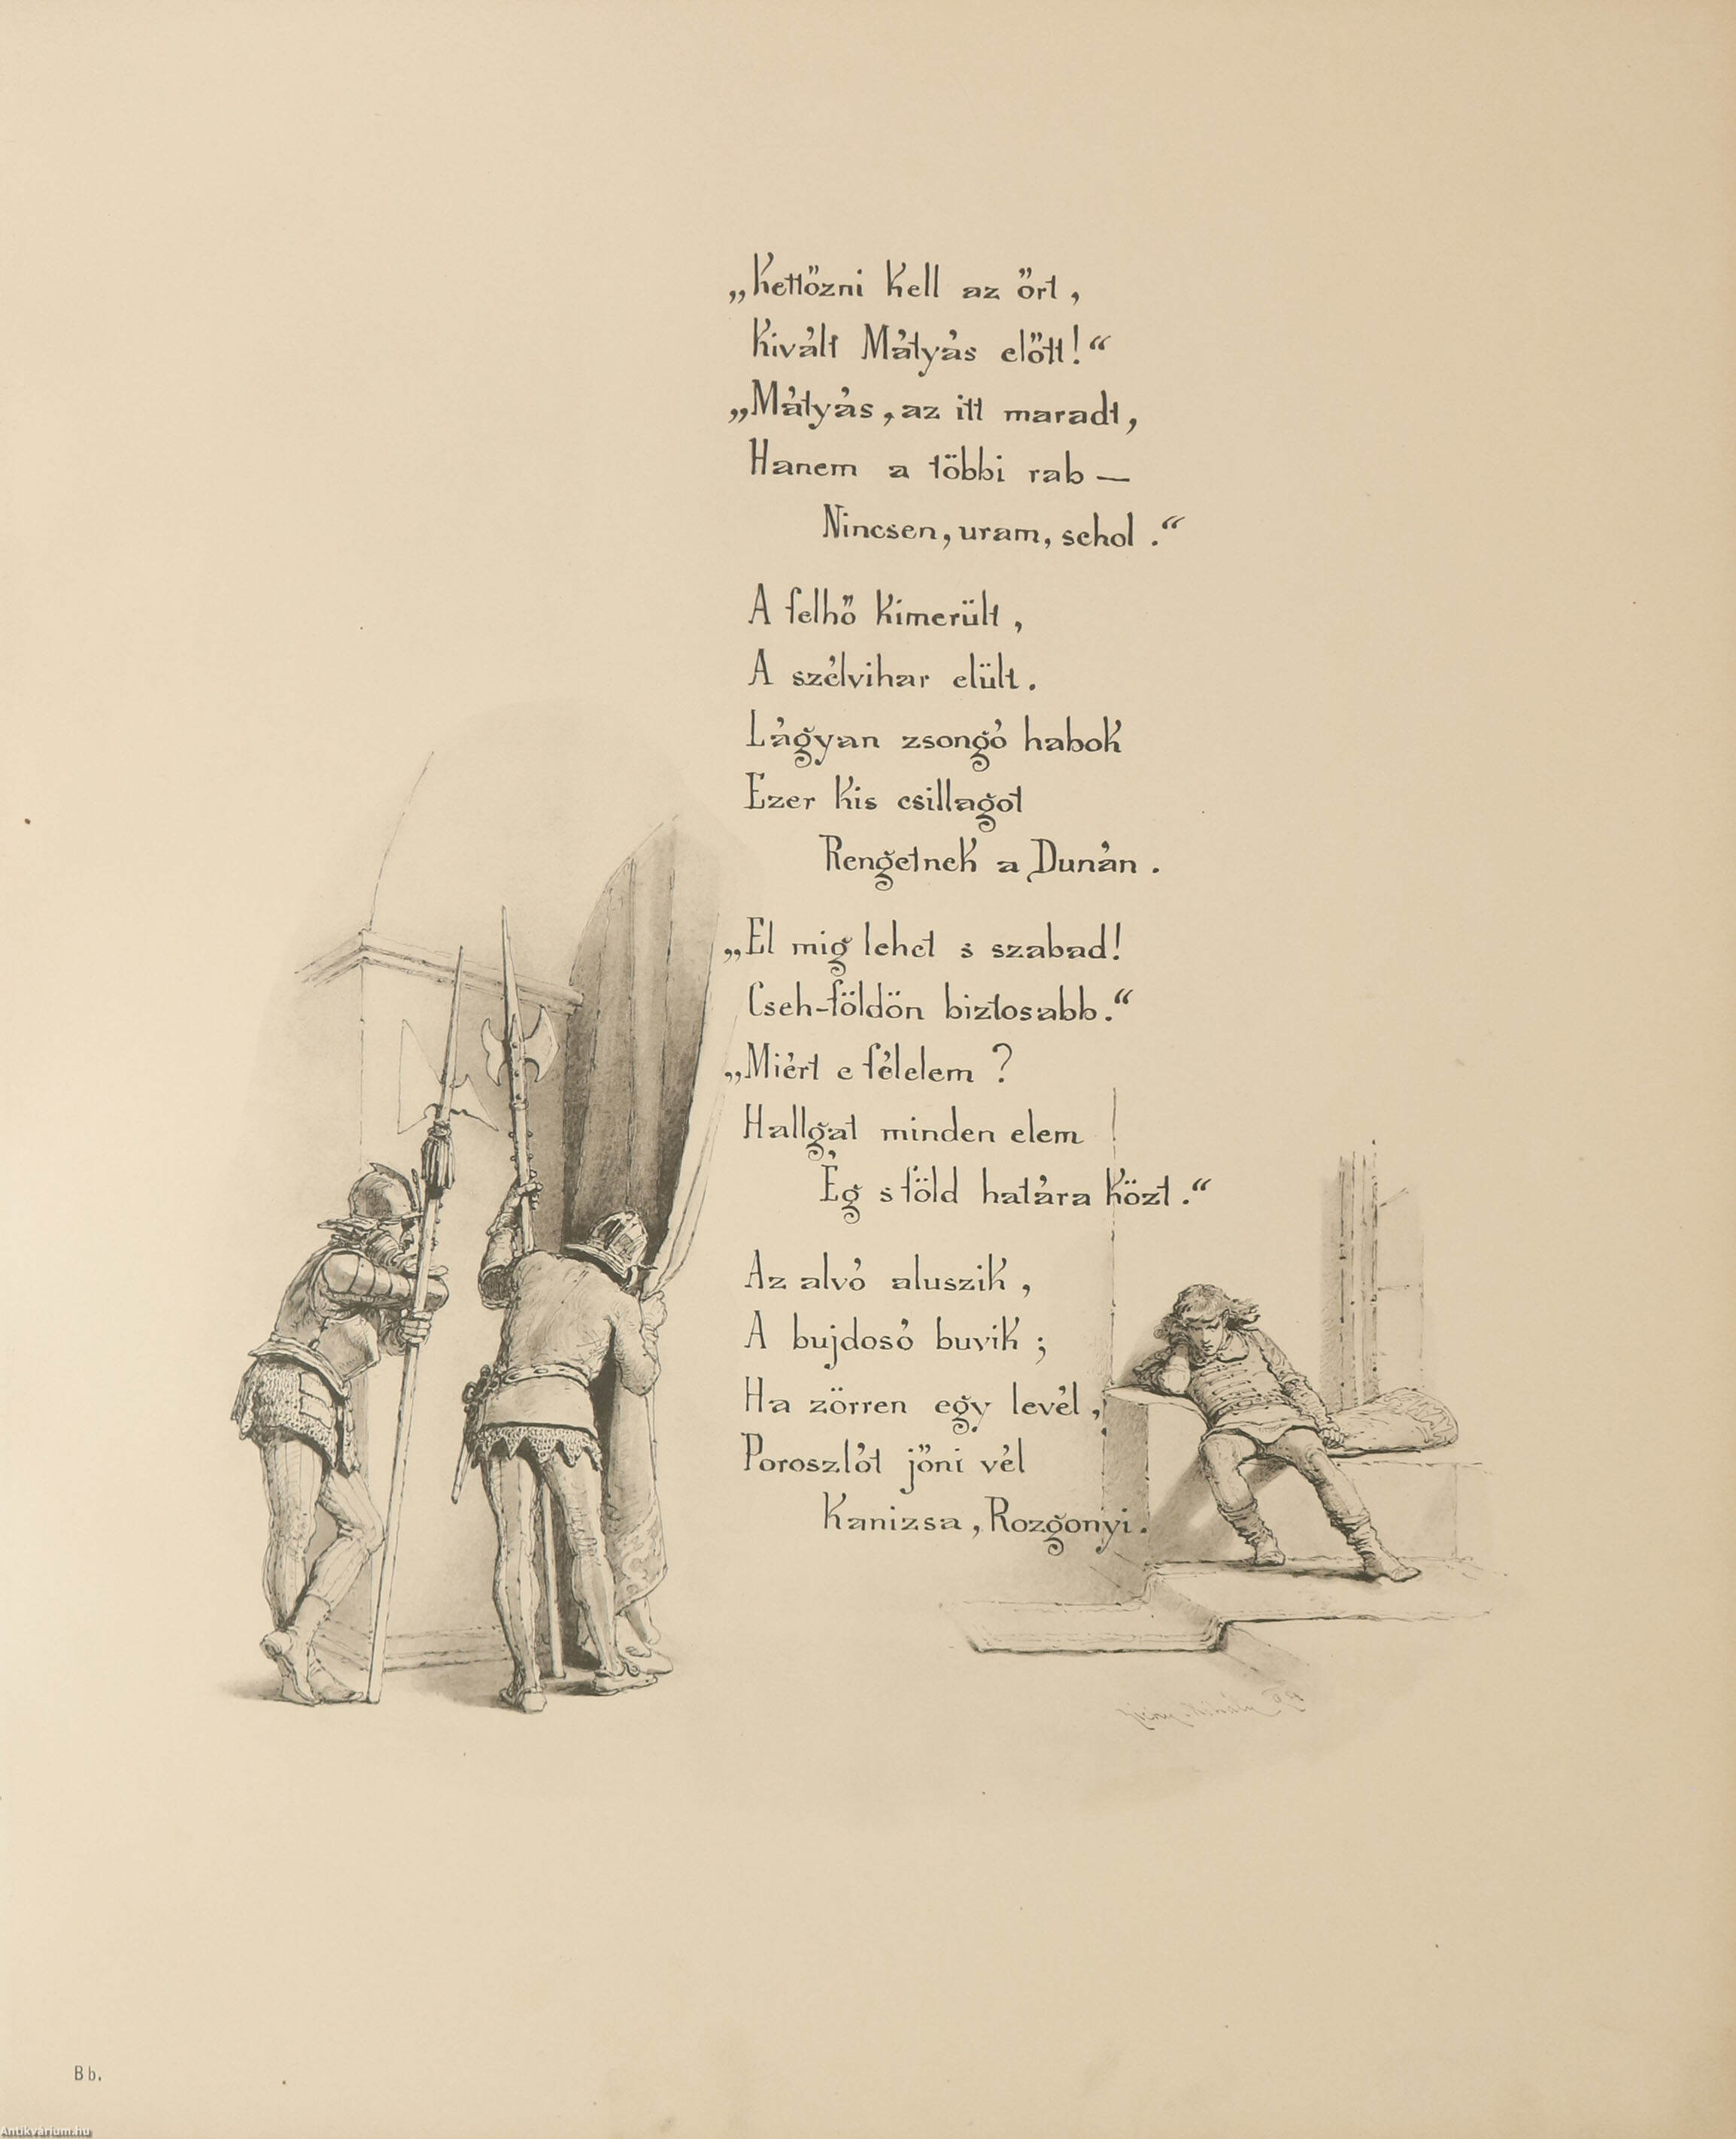 „Kettőzni kell az őrt,
Kivált Mátyás előtt!“
„Mátyás, az itt maradt,
Hanem a többi rab —
Nincsen, uram, sehol.“
A felhő kimerült,
A szélvihar elült.
Lágyan zsongó habok
Ezer kis csillagot
Rengetnek a Dunán.
„El mig lehet s szabad!
Cseh-földön biztosabb.“
„Miért e félelem?
Hallgat minden elem
Ég s föld határa közt.“
Az alvó aluszik,
A bujdosó buvik;
Ha zörren egy levél,
Poroszlót jőni vél
Kanizsa, Rozgonyi.
Bb.
Antikvárium.hu